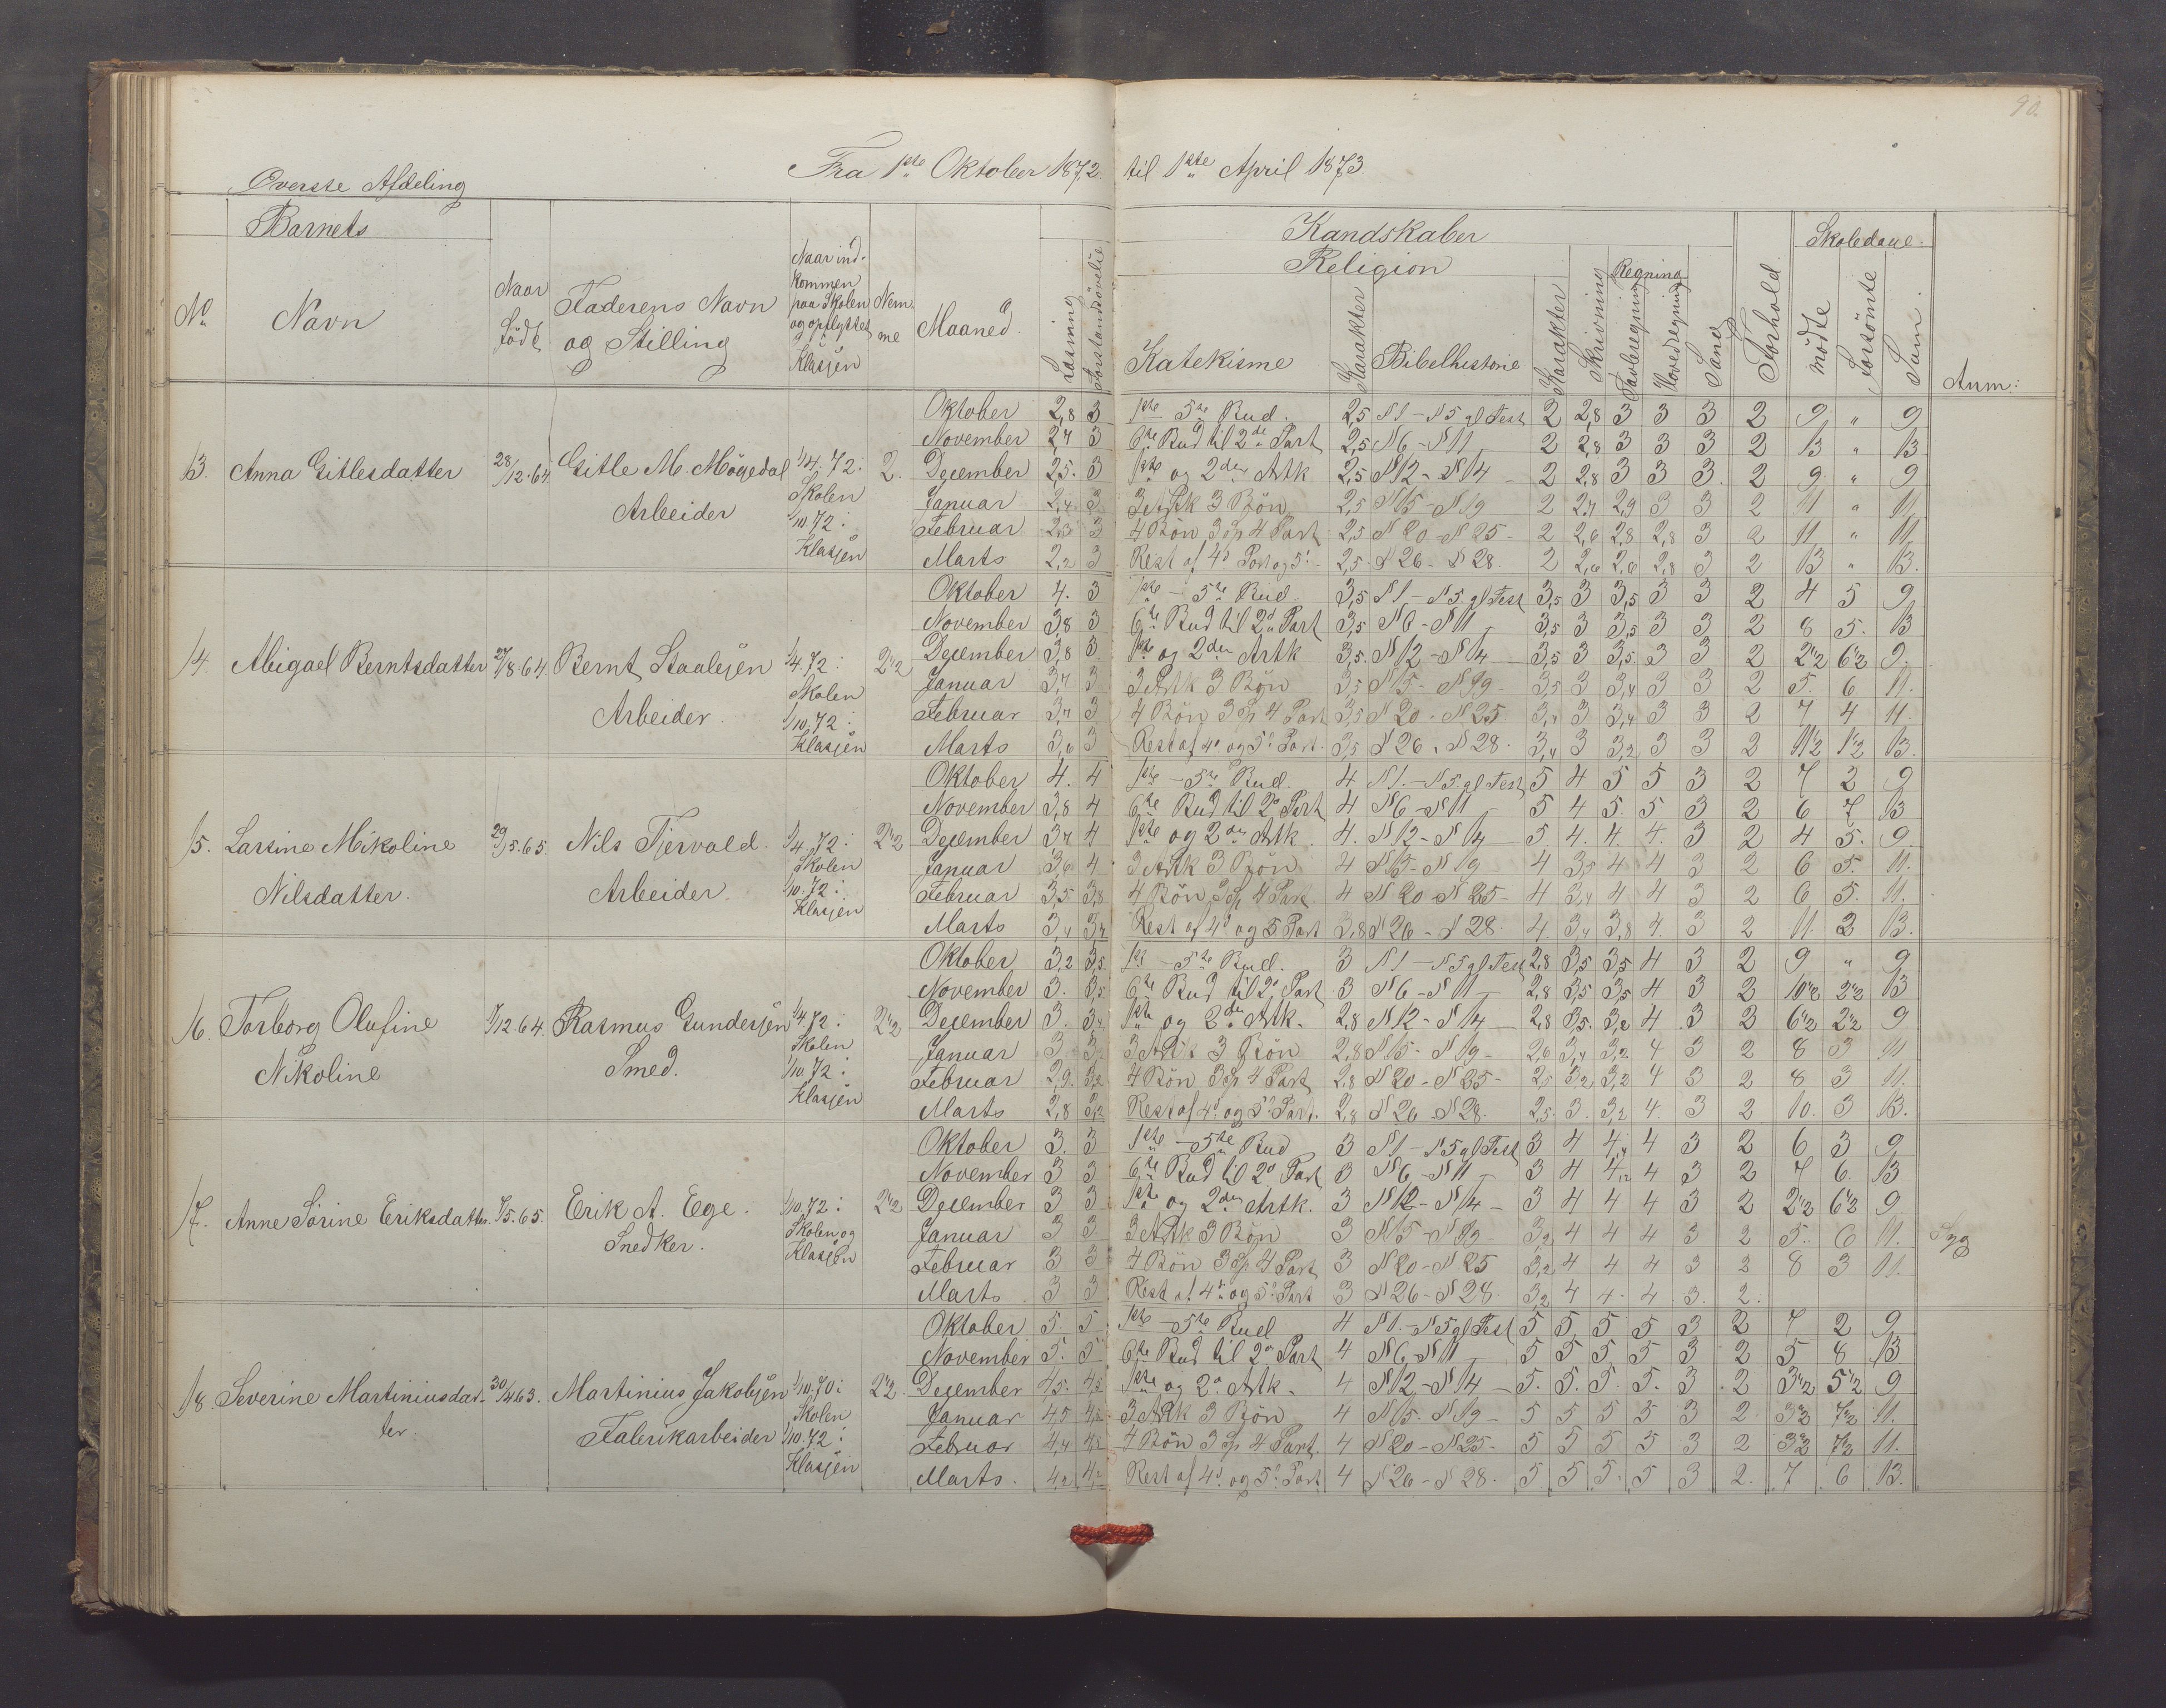 90.
Fra 1ste Oktober 1872. til 1ste April 1873.
Øverste Afdeling
Barnets
No Navn Naar Födt Faderens Navn og Stilling Naar ind-kommen paa Skolen og opflyttet i Klassen Nemme Maaned. Læsning Forstandsövelse
Kundskaber
Religion
Katekisme Karakter Bibelhistorie Karakter Skrivning Regning Tavleregning Hovedregning Sang Forhold
Skoledage
mödte Forsömte Sum. Anm:
13. Anna Gitlesdatter 28/12.64 Gitle M. Mögedal Arbeider 1/4.72: Skolen 1/10.72: Klassen 2.
Oktober 2,8 3 1ste - 5te Bud. 2,5 N 1 - N 5 gl Test 2 2,8 3 3 3 2 9 " 9
November 2,7 3 6te Bud til 2den Part 2,5 N 6 - N 11 2 2,8 3 3 3 2 13 " 13
Dezember 2,5. 3 1ste og 2den Artk 2,5 N 12 - N 14 - 2 2,8 3 3 3. 2 9. " 9
Januar 2,4 3 3 Artk 3 Bön 2,5 N 15 - N 19 2 2,7 2,9 3 3 2 11 " 11
Februar 2,3 3 4 Bön 3 Sp 4 Part 2,5 N 20 - N 25 - 2 2,6 2,8 2,8 3 2 11 " 11.
Marts 2,2 3 Rest af 4d Part og 5t 2,5. N 26 - N 28. 2 2,6 2,6 2,8 3 2 13 " 13.
14. Abigael Berntsdatter 27/8.64. Bernt Staalesen Arbeider 1/4.72: Skolen 1/10.72: Klassen 2"2
Oktober 4. 3 1ste - 5te Bud. 3,5 N 1 - N 5. gl Test 3,5 3 3,5 3 3 2 4 5 9
November 3,8 3 6te Bud til 2d Part 3,5 N 6 - N 11 - 3,5 3 3,5 3 3 2 8 5. 13
Dezember 3,8 3 1ste og 2den Artk 3,5. N 12 - N 14 3,5 3 3,5. 3 3 2 2"2 6"2 9.
Januar 3,7 3 3 Artk 3 Bön 3,5 N 15 - N 19 - 3,5 3 3,4 3 3 2 5. 6 11.
Februar 3,7 3 4 Bön 3 Sp 4 Part 3,5 N 20 - N 25 3,4 3 3,4 3 3 2 7 4 11.
Marts 3,6 3 Rest af 4d og 5t Part. 3,5 N 26 - N 28. 3,4 3 3,2 3 3 2 11"2 1"2 13.
15. Larsine Mikoline Nilsdatter. 29/5.65. Nils Tjervald. Arbeider. 1/4.72: Skolen 1/10.72: Klassen 2"2
Oktober 4. 4 1ste - 5te Bud. 4 N 1. - N 5. gl Test 5 4 5 5 3 2 7 2 9
November 3,8 4 6te Bud til 2d Part 4 N 6 - N 11 - 5 4 5. 5 3 2 6 7 13
Dezember 3,7 4 1ste og 2den Artk 4. N 12 - N 14 5 4. 4. 4. 3 2 4 5. 9.
Januar 3,6 4 3 Artk 3 Bön 4 N 15 - N 19 - 4 3,5 4 4 3 2 6 5. 11.
Februar 3,5 3,8 4 Bön 3 Sp 4 Part. 4 N 20 - N 25 - 4 3,4 4 4 3 2 6 5. 11.
Marts 3,4 3,7 Rest af 4d og 5 Part 3,8 N 26 - N 28. 4. 3,4 3,8 4. 3 2 11. 2 13.
16. Torborg Olufine Nikoline 1/12.64. Rasmus Gundersen Smed. 1/4.72: Skolen 1/10.72: Klassen 2"2
Oktober 3,2 3,5 1ste - 5te Bud. 3 N 1 - N 5 gl Test 2,8 3,5 3,5 4 3 2 9 " 9
November 3. 3,5 6te Bud til 2d Part 3 N 6 - N 11 - 2,8 3,5 3,5 4 3 2 10"2 2"2 13
Dezember 3. 3,4 1ste og 2den Artk. 2,8 N 12 - N 14 2,8 3,5. 3,2 4 3 2 6"2 2"2 9
Januar 3 3,2 3 Artk 3 Bön 2,8 N 15 - N 19 - 2,6 3,4 3,2 4 3 2 8 3 11
Februar 2,9. 3,2 4 Bön 3 Sp 4 Part 2,8 N 20 - N 25 - 2,5 3,2 3,2 4 3 2 8 3 11.
Marts 2,8 3,2 Rest af 4d og 5t Part. 2,8 N 26 - N 28. 2,5. 3. 3,2 4. 3 2 10. 3 13.
17. Anne Sörine Eriksdatter. 7/5.65. Erik A. Ege. Snedker. 1/10.72: Skolen og Klassen 2"2
Oktober 3. 3 1ste - 5te Bud 3 N 1 - N 5 gl Test 3 4 4,4 4 3 2 6 3 9
November 3 3 6te Bud til 2d Part 3 N 6 - N 11 - 3 4 4,2 4 3 2 7 6. 13
Dezember 3 3 1ste og 2den Artk. 3 N 12 - N 14 - 3 4 4 4 3 2 2"2 6"2 9
Januar 3 3 3 Artk 3 Bön 3 N 15 - N 19 - 3,2 4 4 4 3 2 5. 6 11. Syg
Februar 3 3 4 Bön 3 Sp 4 Part 3 N 20 - N 25 3,2 4 4 4 3 2 8 3 11.
Marts 3 3 Rest af 4d og 5t Part 3 N 26 - N 28. 3,2 4 4. 4. 3. 2.
18. Severine Martiniusdatter. 30/4.63. Martinius Jakobsen Fabrikarbeider 1/10.70: Skolen 1/10.72: Klassen 2"2.
Oktober 5. 5 1ste - 5te Bud 4 N 1. - N 5 gl Test 5 5 5 5 3 2 7 2 9
November 5. 5 6te Bud til 2d Part 4 N 6 - N 11 - 5 5 5 5 3 2 5 8 13
Dezember 4,5. 4,5 1ste og 2d Artk - 4 N 12 - N 14 - 5. 5. 5. 5. 3 2 3"2 5"2 9
Januar 4,5 4,5 3 Artk 3 Bön 4 N 15 - N 19 - 5 5 5 5 3 2 3"2 7"2 11.
Februar 4,4 4,2 4 Bön 3 Sp 4 Part. 4 N 20 - N 25 - 5 5 5 5 3 2 3"2 7"2 11.
Marts. 4,2 4,2 Rest af 4d og 5t Part 4 N 26 - N 28. 5 5 5. 5 3 2. 7 6 13.